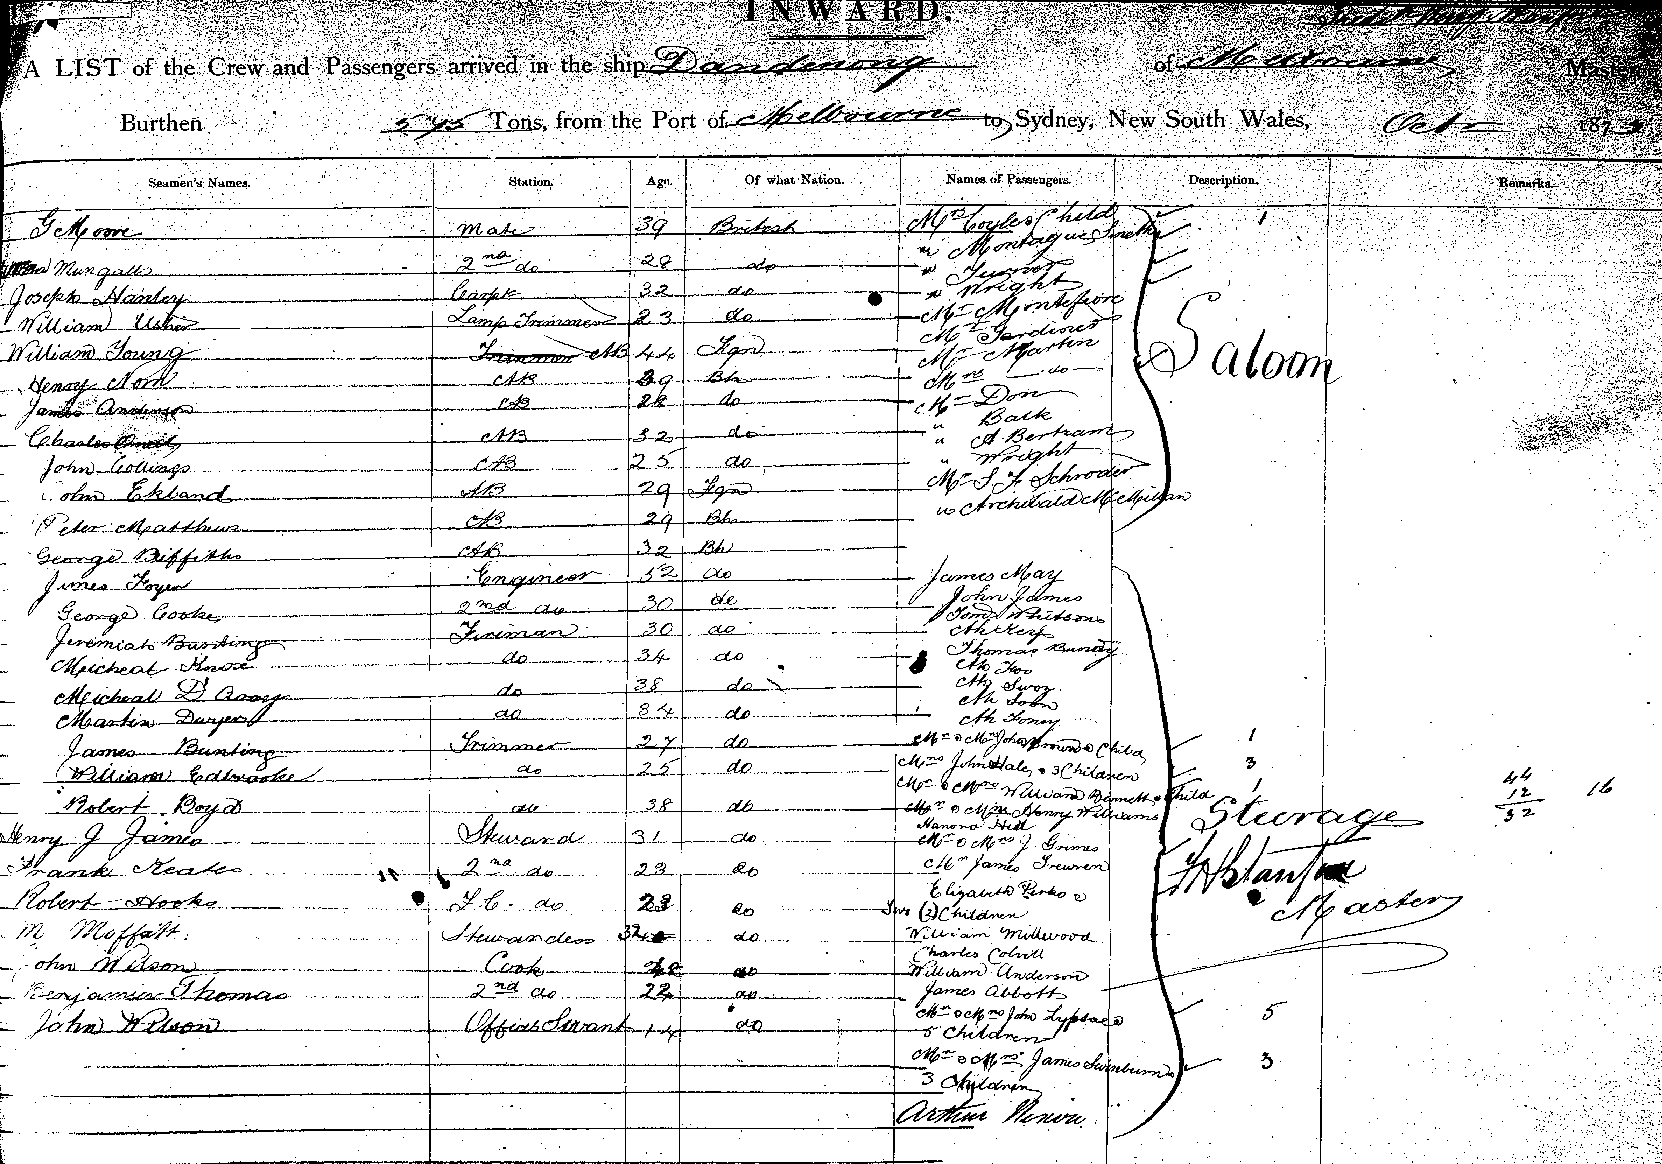 INWARD.
A LIST of the Crew and Passengers arrived in the ship Dandenong of Melbourne Master
Burthen 575 Tons, from the Port of Melbourne to Sydney, New South Wales, Octr 187
Seamen's Names. Station. Age. Of what Nation. Names of Passengers. Description. Remarks.
G Moore Mate 39 British Mrs Coyles Child 1
" Montague Smith
Mungall 2nd do 28 do " Turner
Joseph Hanley Carpt 32 do " Wright
William Usher Lamp Trimmer 23 do Mr Montefiore
Mr Jardines
William Young Trimmer AB 44 Fgn Mr Martin
Henry Nom AB 39 Bh Mrs do
James Anderson AB 28 do Mr Don
Saloon
" Balk
Charles AB 32 do " A Bertram
John Collings AB 25 do " Wright
John Ekland AB 29 Fgn Mr S F Schroder
" Archibald McMillan
Peter Matthews AB 29 Bh
George Biffiths AB 32 Bh
James Foyer Engineer 52 do James May
George Cooke 2nd do 30 do John James
Tom Whitson
Jeremiah Bunting Fireman 30 do Ah Key
Thomas Bundy
Micheal Knox do 34 do Ah Foo
Micheal D do 38 do Ah Swoy
Ah
Martin Dwyer do 34 do Ah Foney
James Bunting Trimmer 27 do Mr & Mrs John Brown & Child 1
William Edbrooke do 25 do Mrs John Hale, & 3 Children 3
Mr & Mrs William Bennett & Child 1
44
12
52
16
Robert Boyd do 38 do Mr & Mrs Henry Williams
Sturage
Hanora Hill
Henry J James Steward 31 do Mr & Mrs J Grimes
Frank Keates 2nd do 23 do Mr James Trewren
Master
Elizabeth Perks &
Robert Hooks F.C. do 23 do Two (2) Children
M Moffatt Stewardess 32 do William Millwood
Charles Colvill
John Wilson Cook do William Anderson
Benjamin Thomas 2nd do 22 do James Abbott
John Wilson Officers Servant 14 do Mr & Mrs John &
5 Children 5
Mr & Mrs James Swinburn &
3 Children 3
Arthur